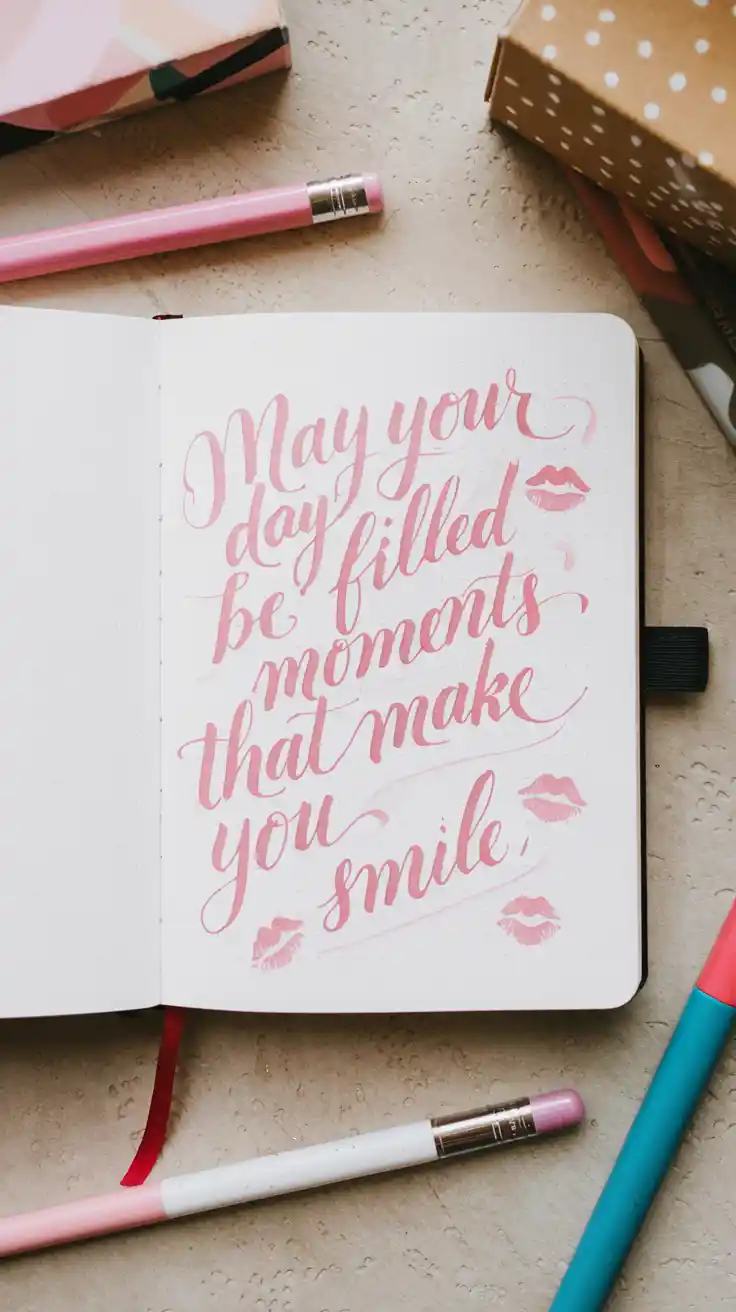 May your
day
be filled
moments
that make
you
smile.